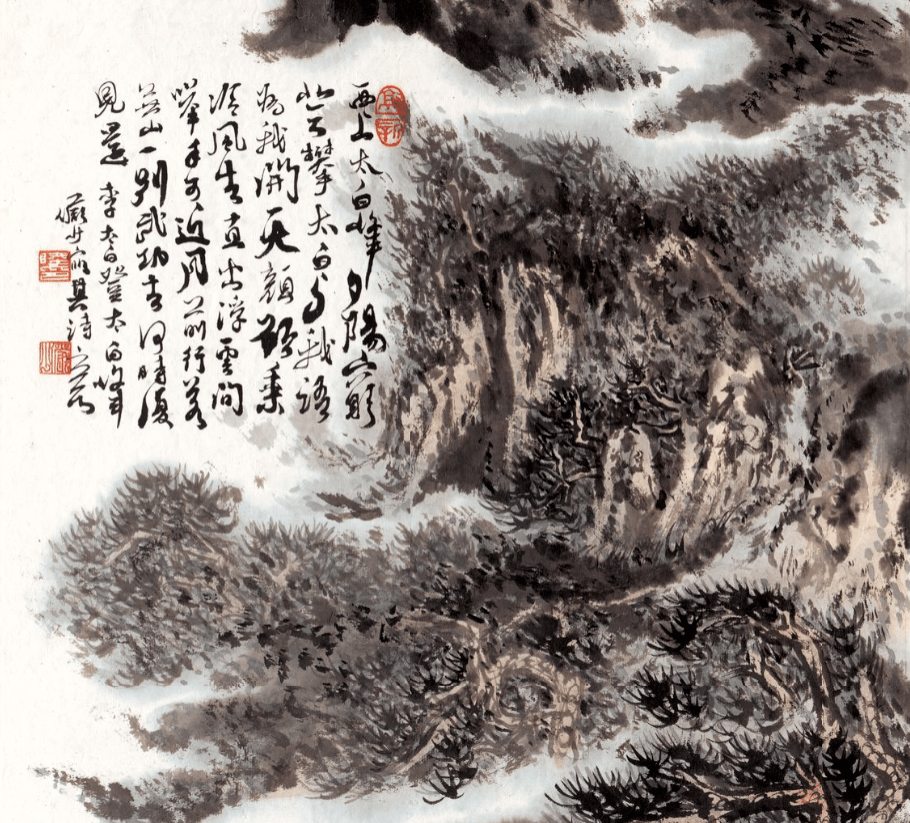 西上太白峰夕陽窮
登攀太白與我語
為我開天顏願乘
泠風去直出浮雲間
舉手可近月前行若
無山一別武功去何時復
見還 李太白登太白峰
儼少寫其詩意